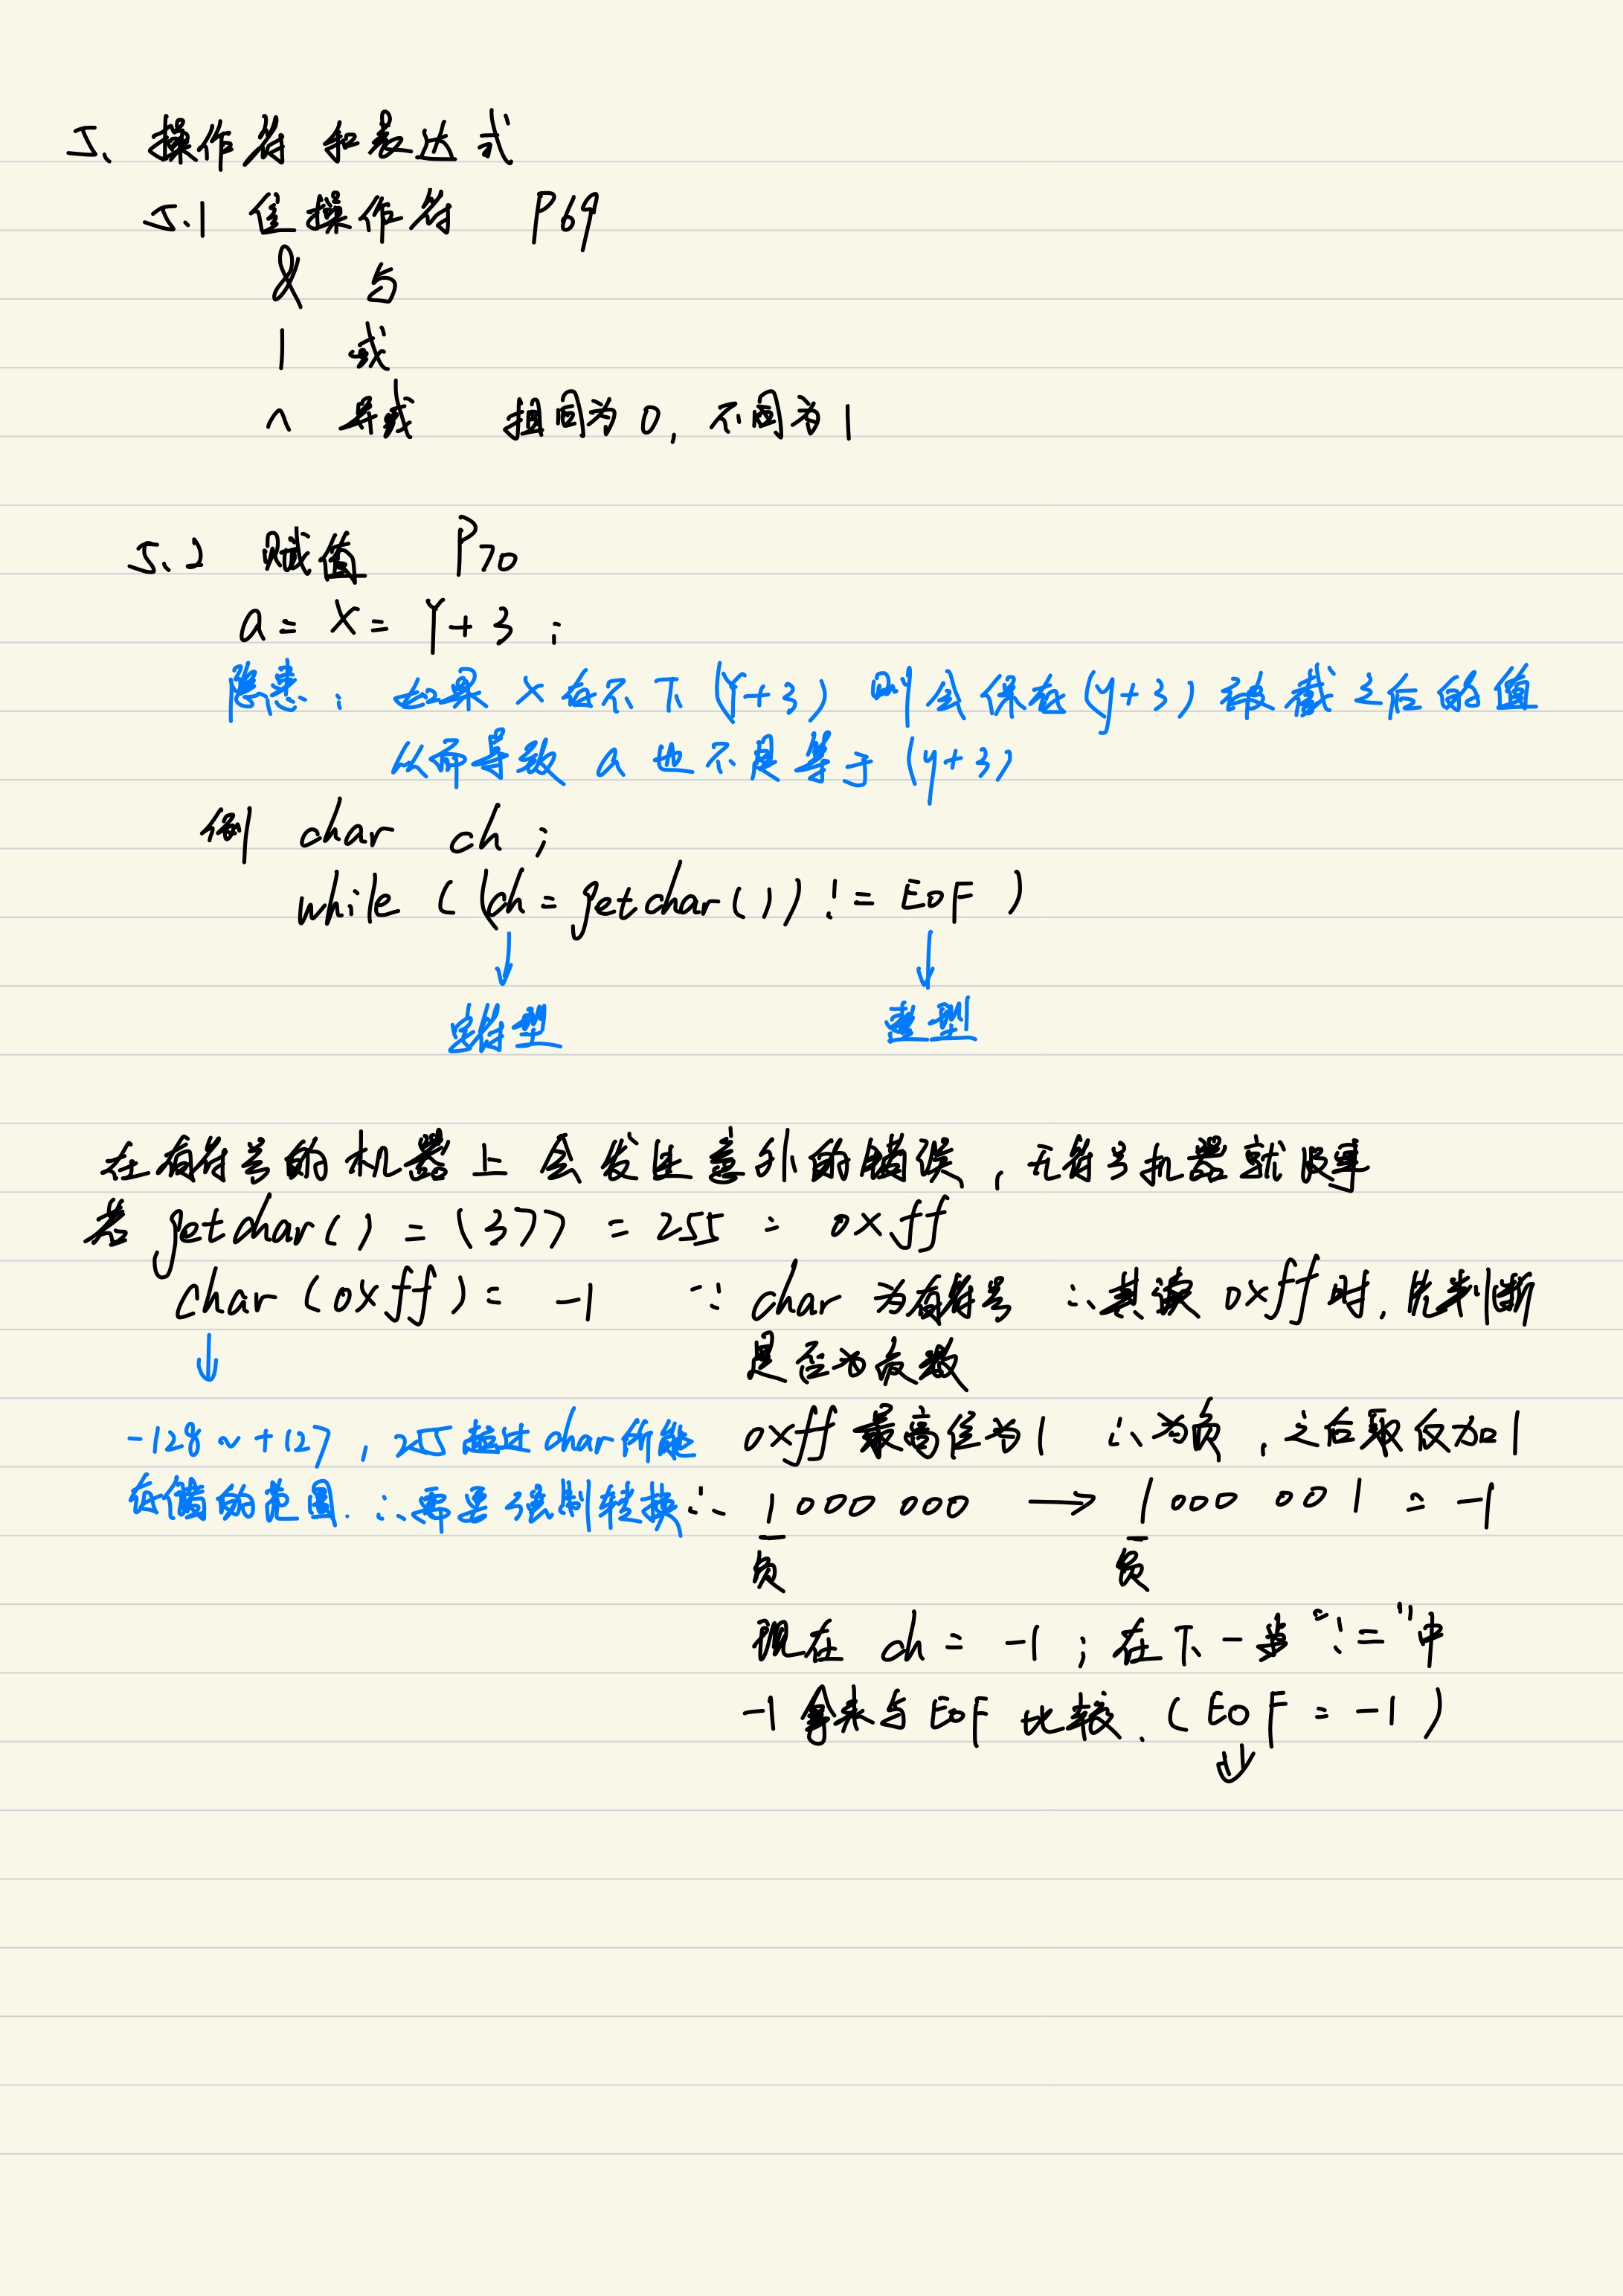 5、操作符和表达式
5.1 位操作符 P69
& 与
| 或
^ 异或 相同为0, 不同为1
5.2 赋值 P70
a = x = y + 3 ;
隐患: 如果 x 存不下 (y+3) 则会保存(y+3) 被截之后的值
从而导致 a 也不是等于 (y+3)
例 char ch ;
while ( (ch = getchar( ) ) != EOF )
字符型 整型
在有符号的机器上会发生意外的错误, 无符号机器就没事
若 getchar( ) = \377 = 255 = 0xff
char (0xff) = -1 ∵ char 为有符号 ∴其读 0xff 时, 先判断
是否为负数
-128 ~ +127, 255 超过 char 所能
存储的范围. ∴需要强制转换
0xff 最高位为1 ∴为负, 之后取反加1
∴ 1 000 000 → 1 000 001 = -1
负 负
现在 ch = -1 ; 在下一步 "!=" 中
-1 拿来与 EOF 比较. ( EOF = -1 )